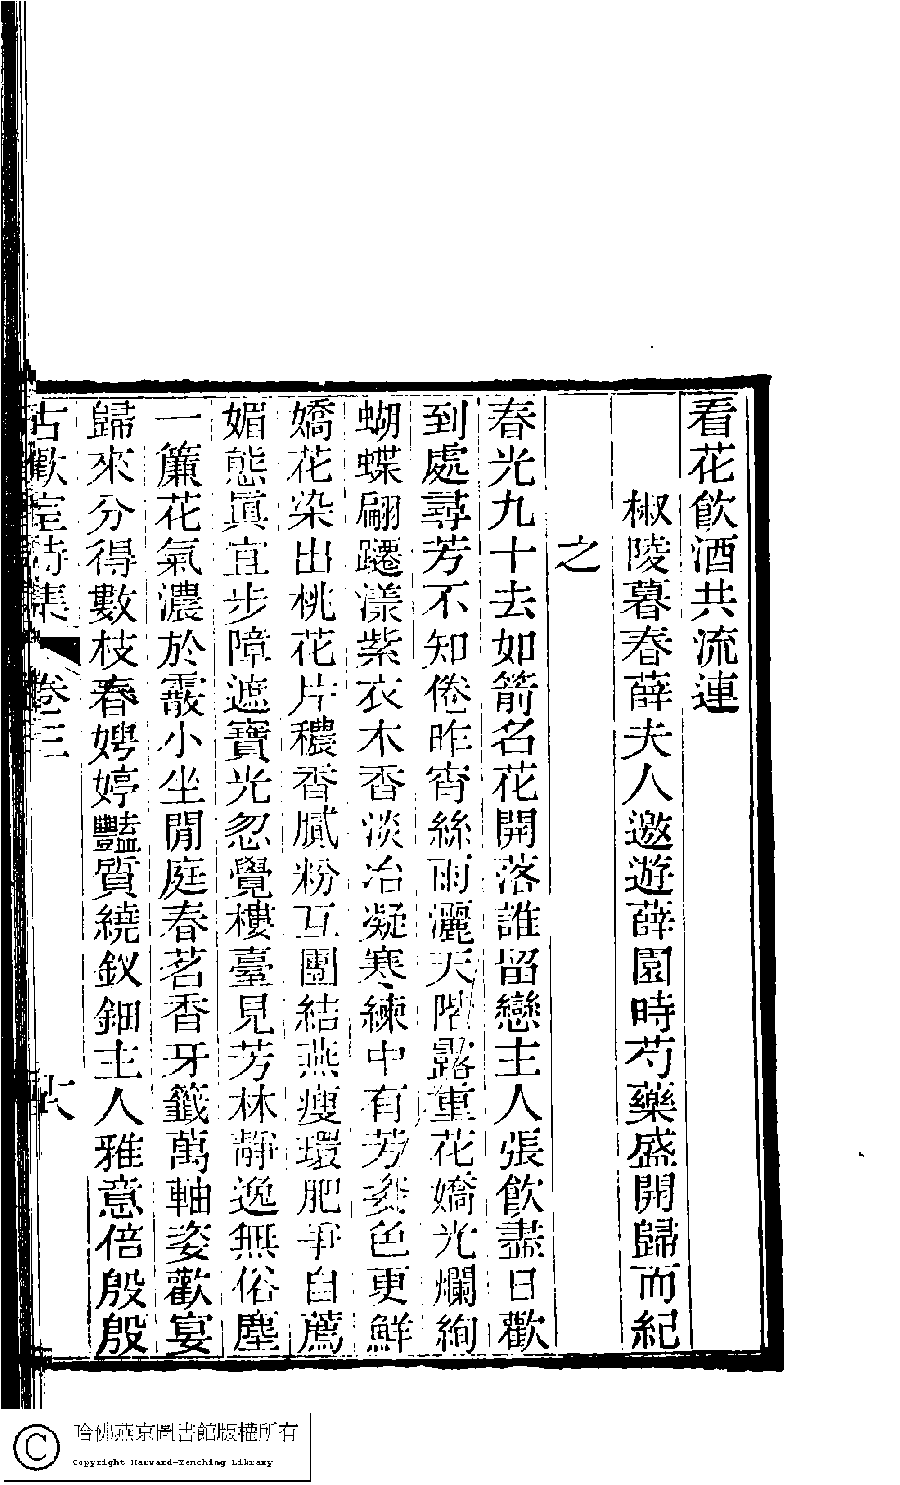 看花飲酒共流連
椒陵暮春薛夫人邀遊薛園時芍藥盛開歸而紀
之
春光九十去如箭名花開落誰留戀主人張飲盡日歡
到處尋芳不知倦昨宵絲雨灑天階露重花嬌光爛絢
蝴蝶翩躚漾紫衣木香淡冶凝寒練中有芳姿色更鮮
嬌花染出桃花片穠香膩粉互團結燕瘦環肥爭自薦
媚態眞宜步障遮寶光忽覺樓臺見芳林靜逸無俗塵
一簾花氣濃於霰小坐閒庭春茗香牙籤萬軸姿歡宴
歸來分得數枝春娉婷豔質繞釵鈿主人雅意倍殷殷
古歡室詩集 卷三
哈佛燕京圖書館版權所有
Copyright Harvard-Yenching Library